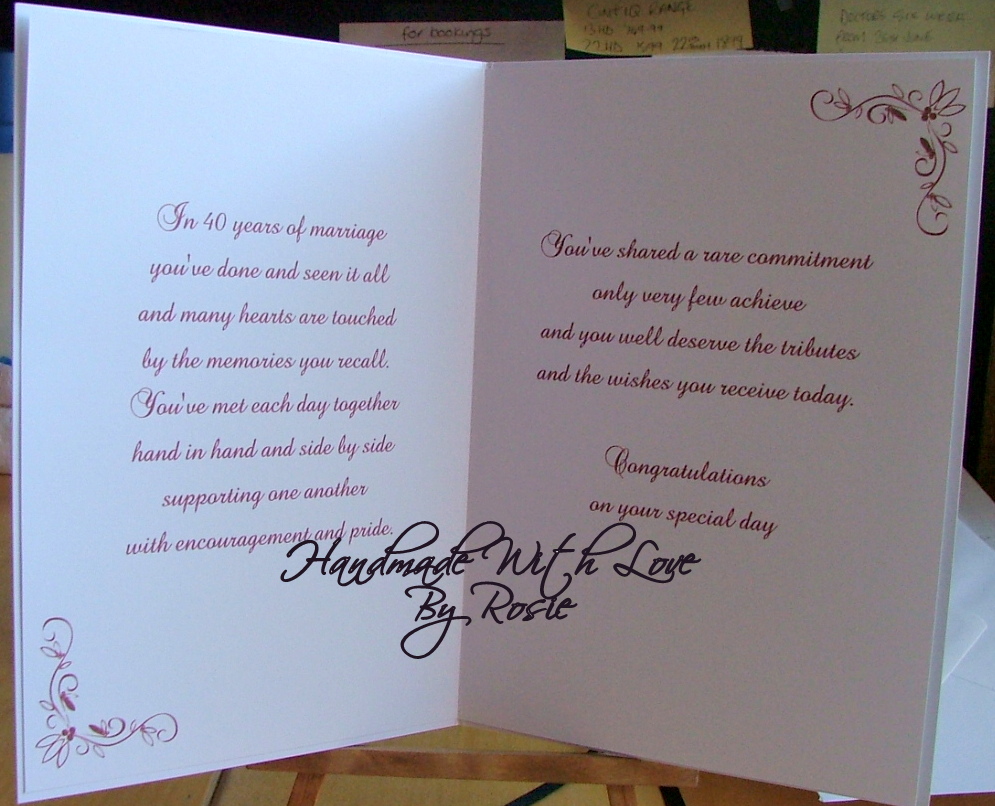 for bookings
DOCTORS SIX WEEK
FROM 26TH JUNE
In 40 years of marriage
you've done and seen it all
and many hearts are touched
by the memories you recall.
You've met each day together
hand in hand and side by side
supporting one another
with encouragement and pride.
You've shared a rare commitment
only very few achieve
and you well deserve the tributes
and the wishes you receive today.
Congratulations
on your special day
Handmade With Love
By Rosie